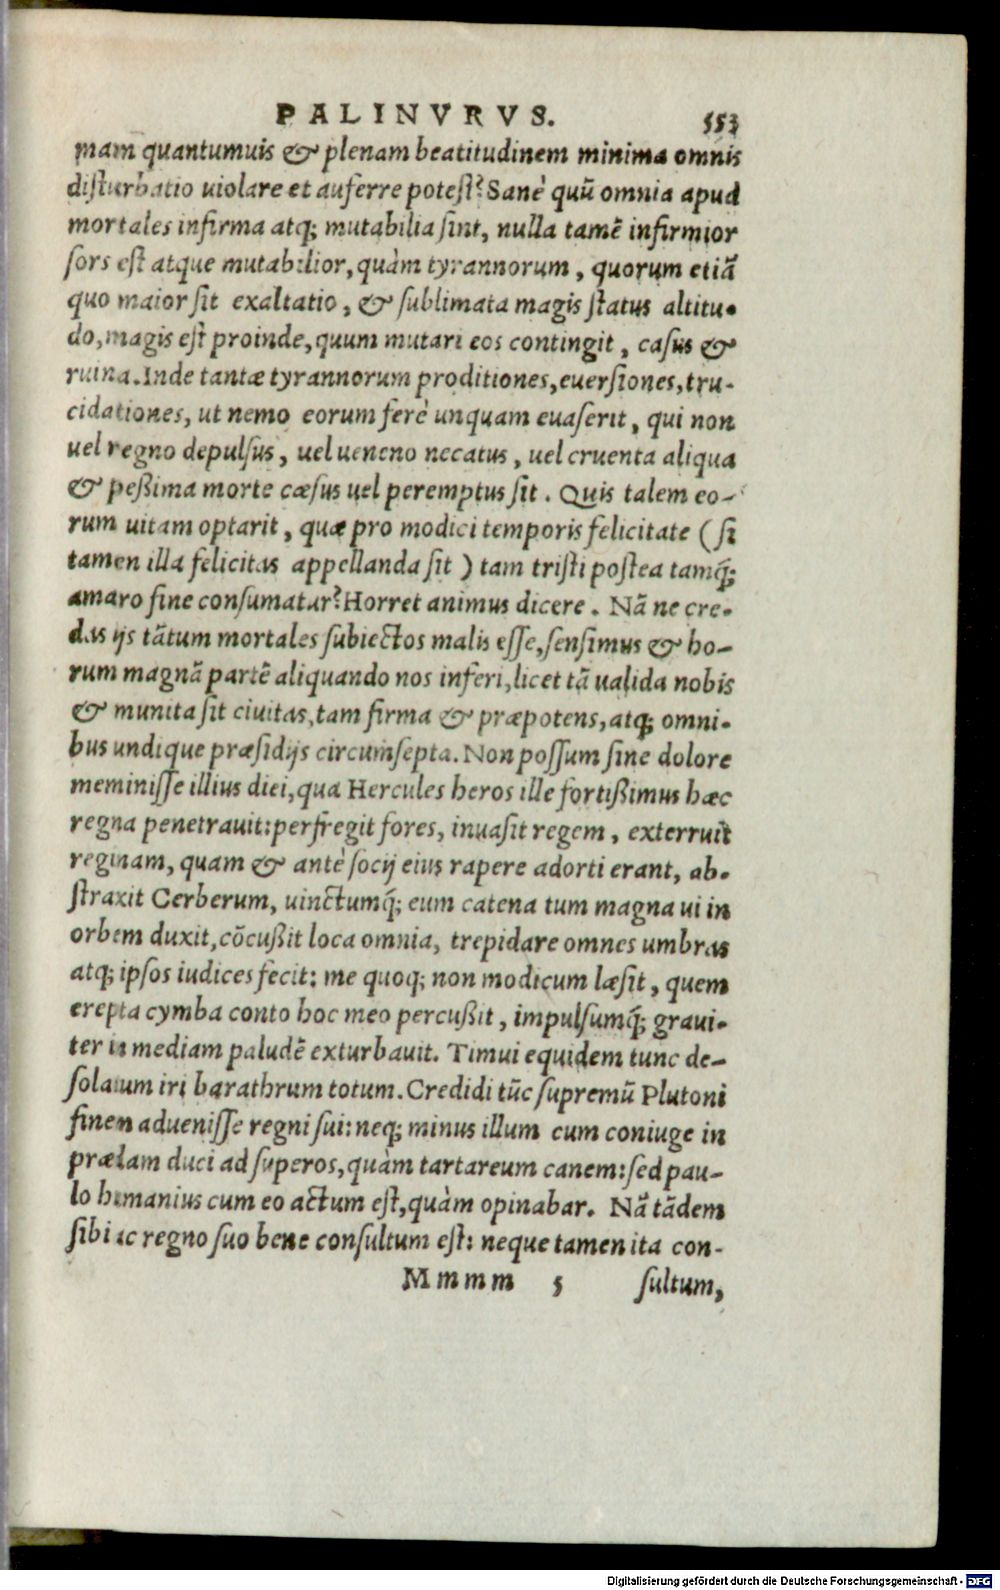 PALINVRVS. 553
mam quantumuis & plenam beatitudinem minima omnis
disturbatio uiolare et auferre potest? Sanè quū omnia apud
mortales infirma atq; mutabilia sint, nulla tamē infirmior
sors est atque mutabilior, quàm tyrannorum, quorum etiā
quo maior sit exaltatio, & sublimata magis status altitu-
do, magis est proinde, quum mutari eos contingit, casus &
ruina. Inde tantæ tyrannorum proditiones, euersiones, tru-
cidationes, ut nemo eorum ferè unquam euaserit, qui non
uel regno depulsus, uel ueneno necatus, uel cruenta aliqua
& peßima morte cæsus uel peremptus sit. Quis talem eo-
rum uitam optarit, quæ pro modici temporis felicitate (si
tamen illa felicitas appellanda sit) tam tristi postea tamq́;
amaro fine consumatur? Horret animus dicere. Nā ne cre-
das ijs tātum mortales subiectos malis esse, sensimus & ho-
rum magnā partē aliquando nos inferi, licet tā ualida nobis
& munita sit ciuitas, tam firma & præpotens, atq; omni-
bus undique præsidijs circumsepta. Non possum sine dolore
meminisse illius diei, qua Hercules heros ille fortißimus hæc
regna penetrauit: perfregit fores, inuasit regem, exterruit
reginam, quam & antè socij eius rapere adorti erant, ab-
straxit Cerberum, uinctumq́; eum catena tum magna ui in
orbem duxit, cōcußit loca omnia, trepidare omnes umbras
atq; ipsos iudices fecit: me quoq; non modicum læsit, quem
erepta cymba conto hoc meo percußit, impulsumq́; graui-
ter in mediam paludē exturbauit. Timui equidem tunc de-
solatum iri barathrum totum. Credidi tūc supremū Plutoni
finem aduenisse regni sui: neq; minus illum cum coniuge in
prædam duci ad superos, quàm tartareum canem: sed pau-
lo humanius cum eo actum est, quàm opinabar. Nā tādem
sibi ac regno suo bene consultum est: neque tamen ita con-
Mmmm 5 sultum,
Digitalisierung gefördert durch die Deutsche Forschungsgemeinschaft - DFG